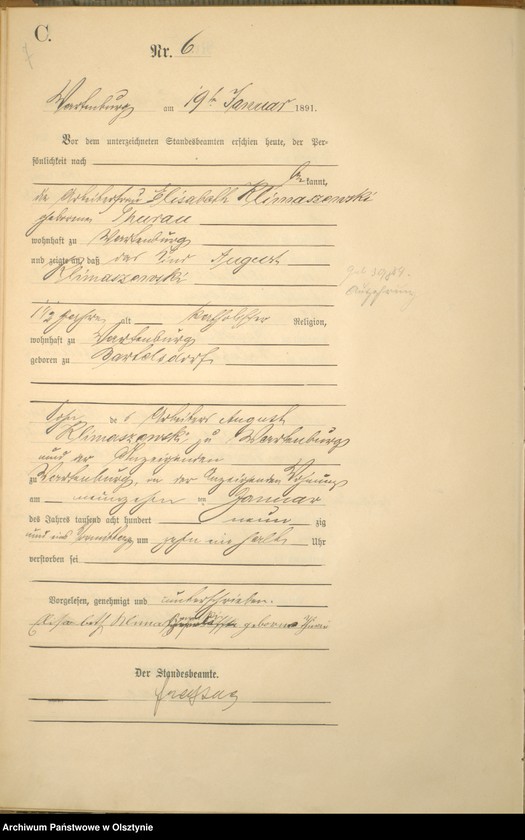 C.
Nr. 6
Wartenburg am 19ten Januar 1891.
Vor dem unterzeichneten Standesbeamten erschien heute, der Per-
sönlichkeit nach
be kannt,
die Arbeiterfrau Elisabeth Klimaszewski
geborene Thurau
wohnhaft zu Wartenburg
und zeigte an, daß das Kind August
Klimaszewski
1 1/2 Jahre alt katholischer Religion,
wohnhaft zu Wartenburg
geboren zu Bartelsdorf
Sohn des Arbeiters August
Klimaszewski zu Wartenburg
und der Anzeigenden
zu Wartenburg, in der Anzeigenden Wohnung
am neunzehnten Januar
des Jahres tausend acht hundert neun zig
und eins Vormittags um zehn ein halb Uhr
verstorben sei
Vorgelesen, genehmigt und unterschrieben.
geborne
Der Standesbeamte.